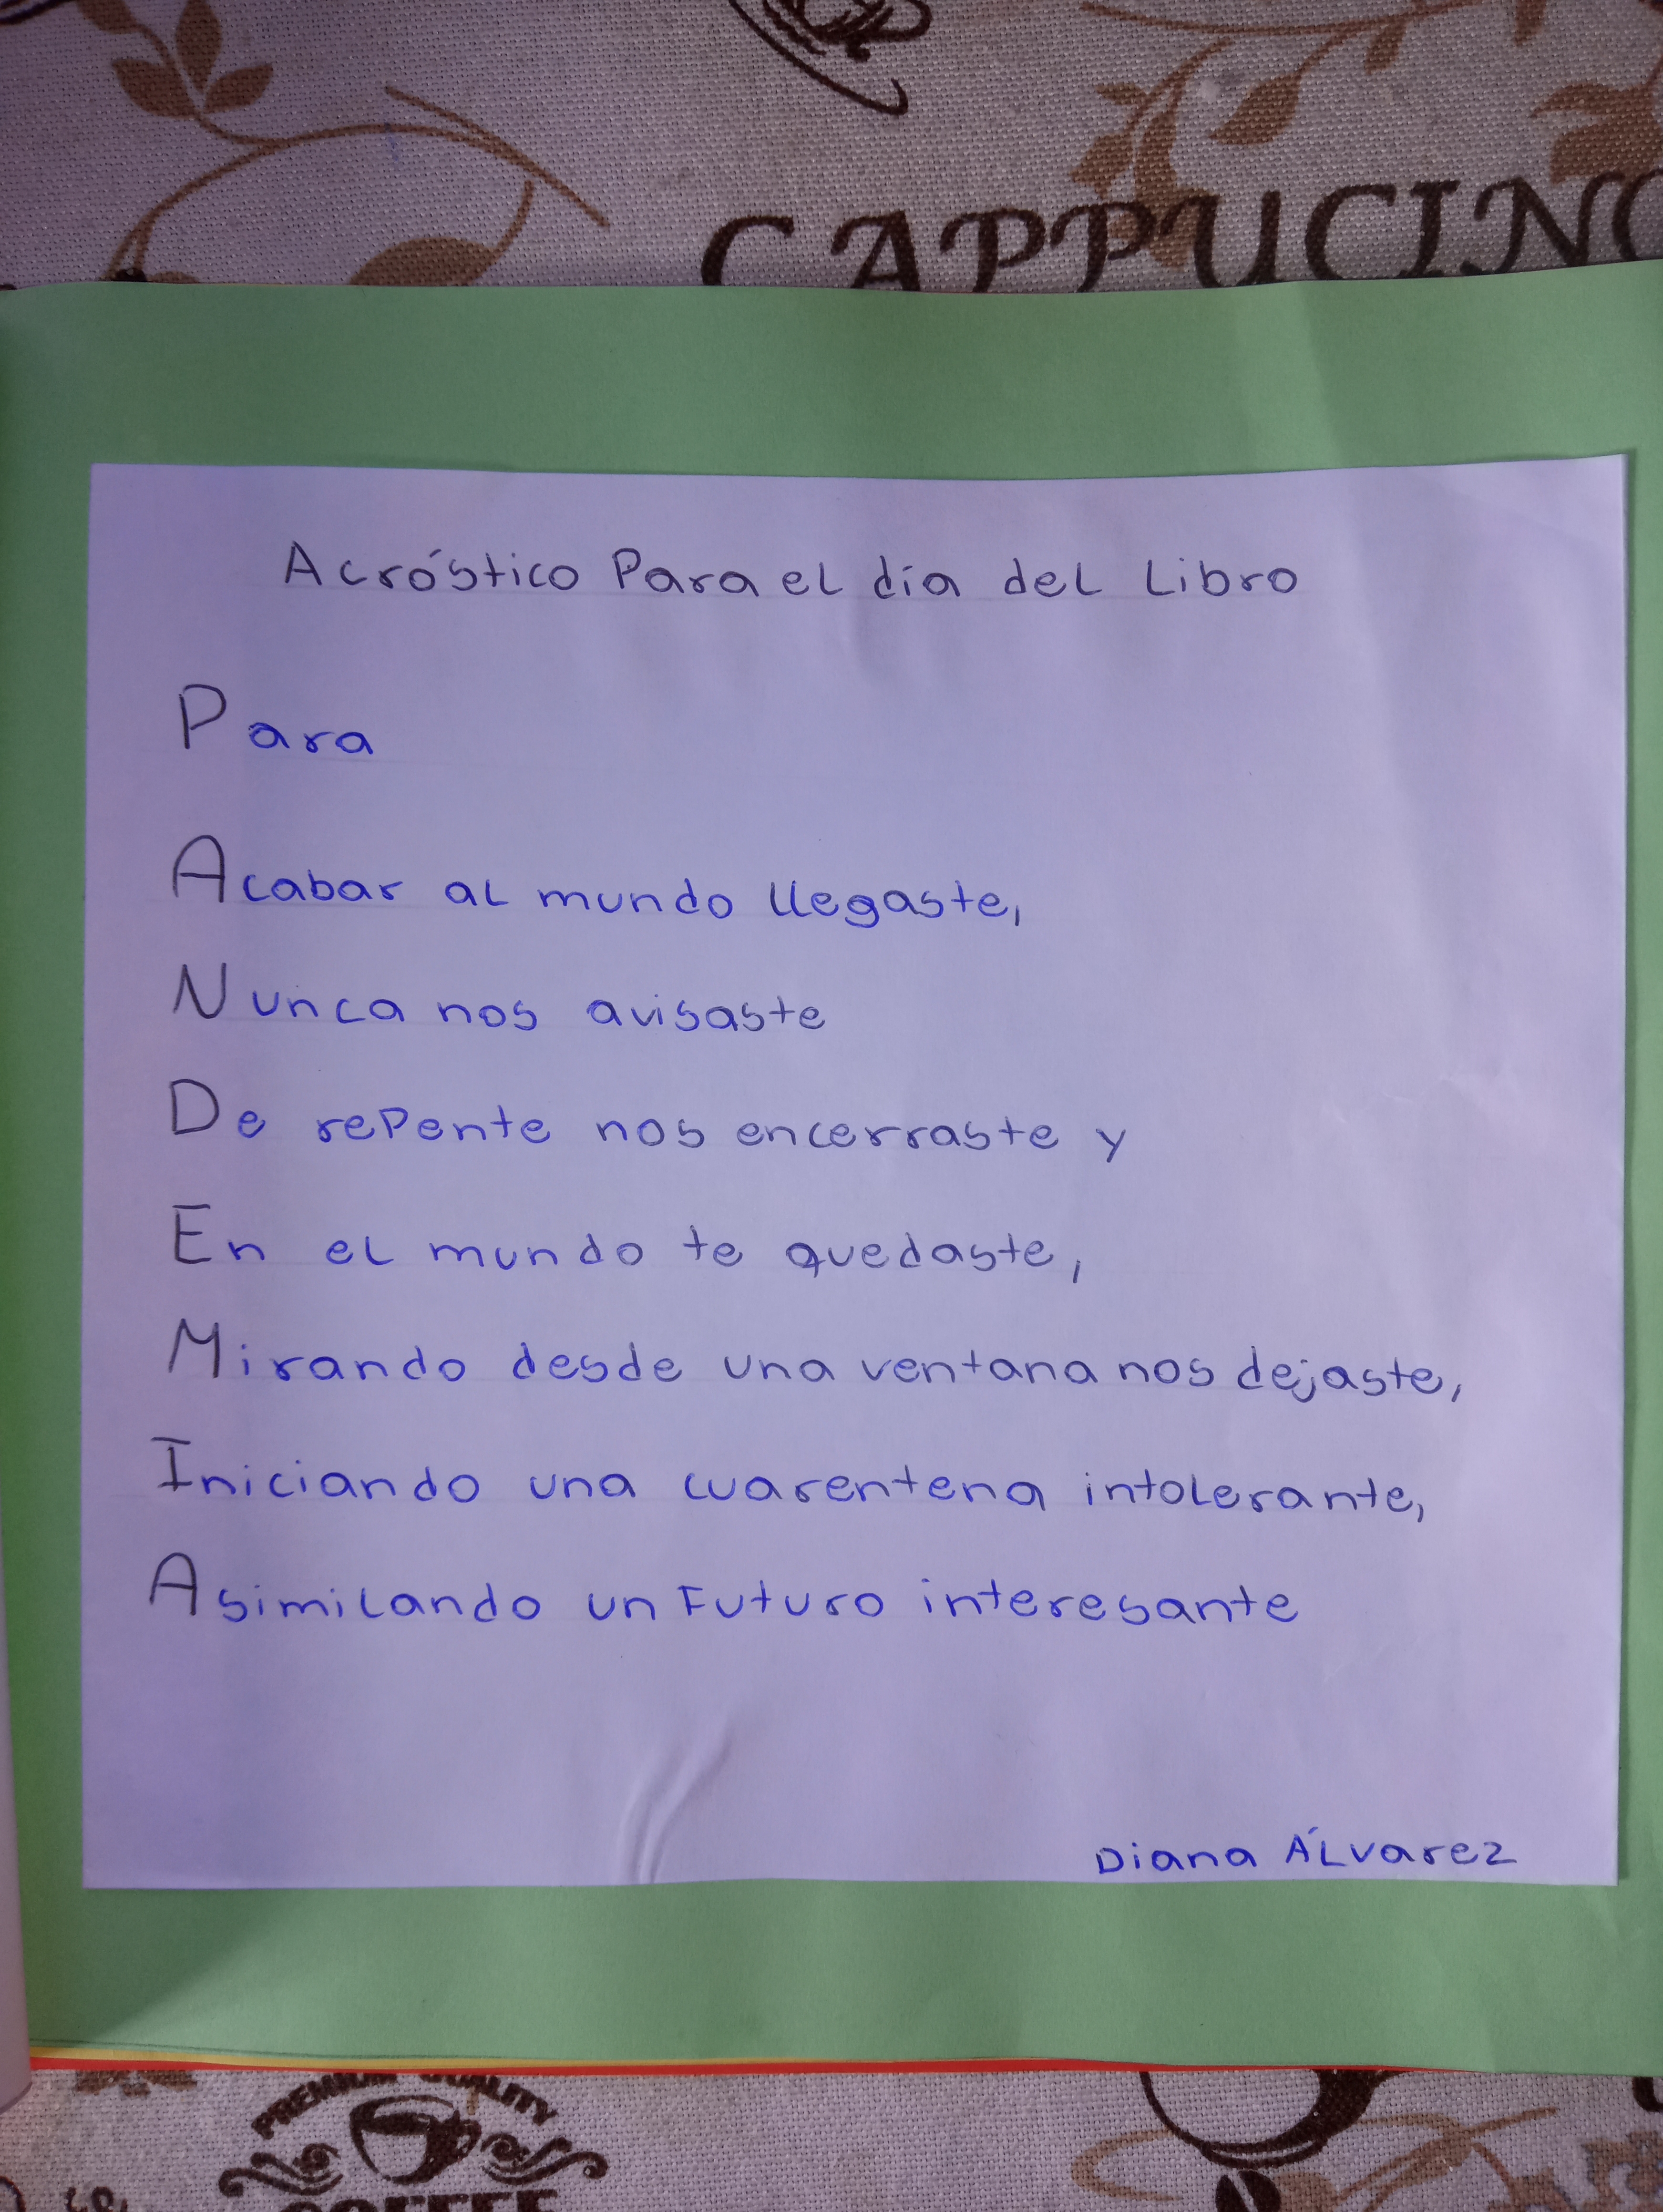 CAPPUCINO
Acróstico Para el día del Libro
Para
Acabar al mundo llegaste,
Nunca nos avisaste
De rePente nos encerraste y
En el mundo te quedaste,
Mirando desde una ventana nos dejaste,
Iniciando una cuarentena intolerante,
Asimilando un Futuro interesante
Diana Álvarez
PREMIUM QUALITY
COFFEE